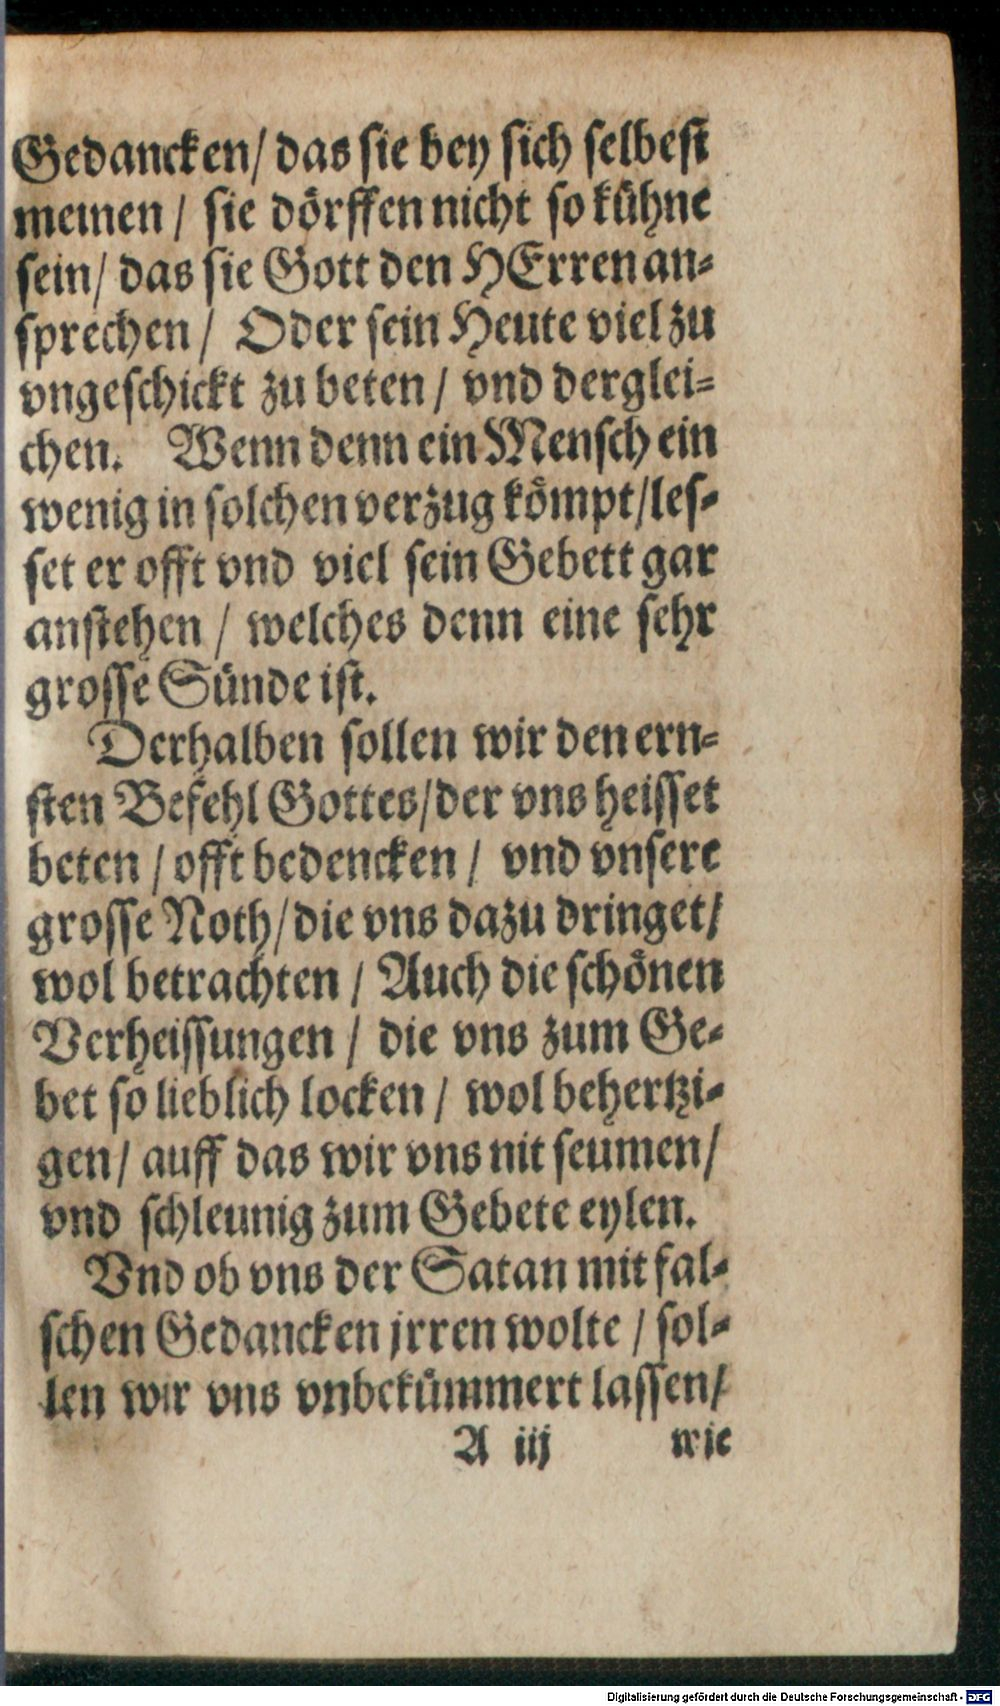 Gedancken/ das sie bey sich selbest
meinen / sie dörffen nicht so kühne
sein/ das sie Gott den HErren an⸗
sprechen / Oder sein Heute viel zu
vngeschickt zu beten / vnd derglei⸗
chen. Wenn denn ein Mensch ein
wenig in solchen verzug kömpt/les⸗
set er offt vnd viel sein Gebett gar
anstehen / welches denn eine sehr
grosse Sünde ist.
Derhalben sollen wir den ern⸗
sten Befehl Gottes/der vns heisset
beten / offt bedencken / vnd vnsere
grosse Noth/die vns dazu dringet/
wol betrachten / Auch die schönen
Verheissungen / die vns zum Ge⸗
bet so lieblich locken / wol behertzi⸗
gen/ auff das wir vns nit seumen/
vnd schleunig zum Gebete eylen.
Vnd ob vns der Satan mit fal⸗
schen Gedancken jrren wolte / sol⸗
len wir vns vnbekümmert lassen/
A iij wie
Digitalisierung gefördert durch die Deutsche Forschungsgemeinschaft - DFG